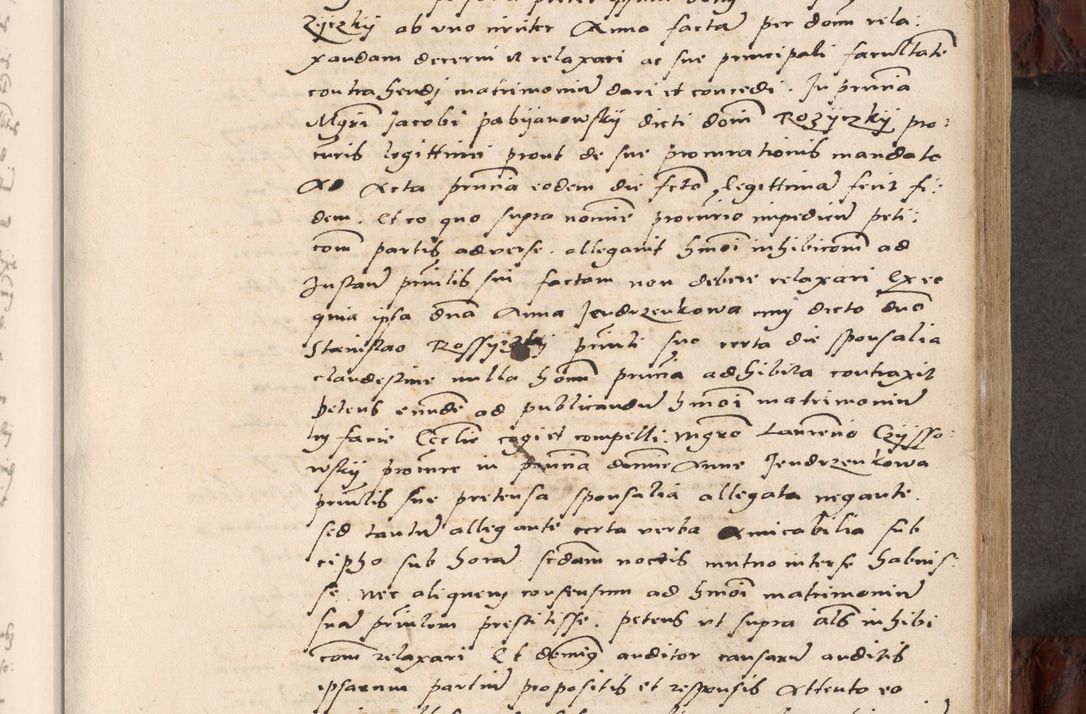 Zyczky ab uno inviter Anna factā per dom rela:
xandam decerni et relaxari ac sue principali facultatē
contrahendj matrimoniū dari et concedi. In pnciā
Mgri Jacobi pabyanowsky dicti domī Rozyczky pro:
curis legittimi prout de sue procurationis mandato
Ad Acta pnciā eodem die fcto legittimā fecit fi:
dem. Et eo quo supra nomīe procurio impediēn peti:
com̄ partis adverse. allegavit hmōi inhibicom̄ ad
Instan̄ pntis sui factam non debere relaxari Ex eo
quia ipsa dnā Anna Jendrzenkowa cuj dicto dnō
Stanislao Rossyczky pnti suo certa die sponsalia
clandestine nulla hom̄ pnciā adhibita contraxit
petens eandē ad publicandū hmōi matrimoniū
in facie Ecclie cogi et compelli. Mgrō Laurenō Czysso:
wsky procure in pnciā domīe Anne Jendrzenkowa
pncilis sue pretensa sponsalia allegata negante.
sed tantū allegante certa verba Amicabilia sub
cipho sub horā sedam noctis mutuo inter se habuis:
se. Nec aliquem consensum ad hmōi matrimoniū
suā pncilem prestitisse. petens ut supra als inhibi
com̄ relaxari Et domīng auditor causarū auditis
ipsarum partiū propositis et responsis Attento eo